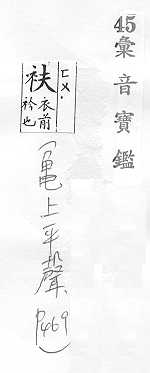 45 彙音寶鑑
ㄈㄨ·
衭 衣前衿也
(亀上平聲 P469)